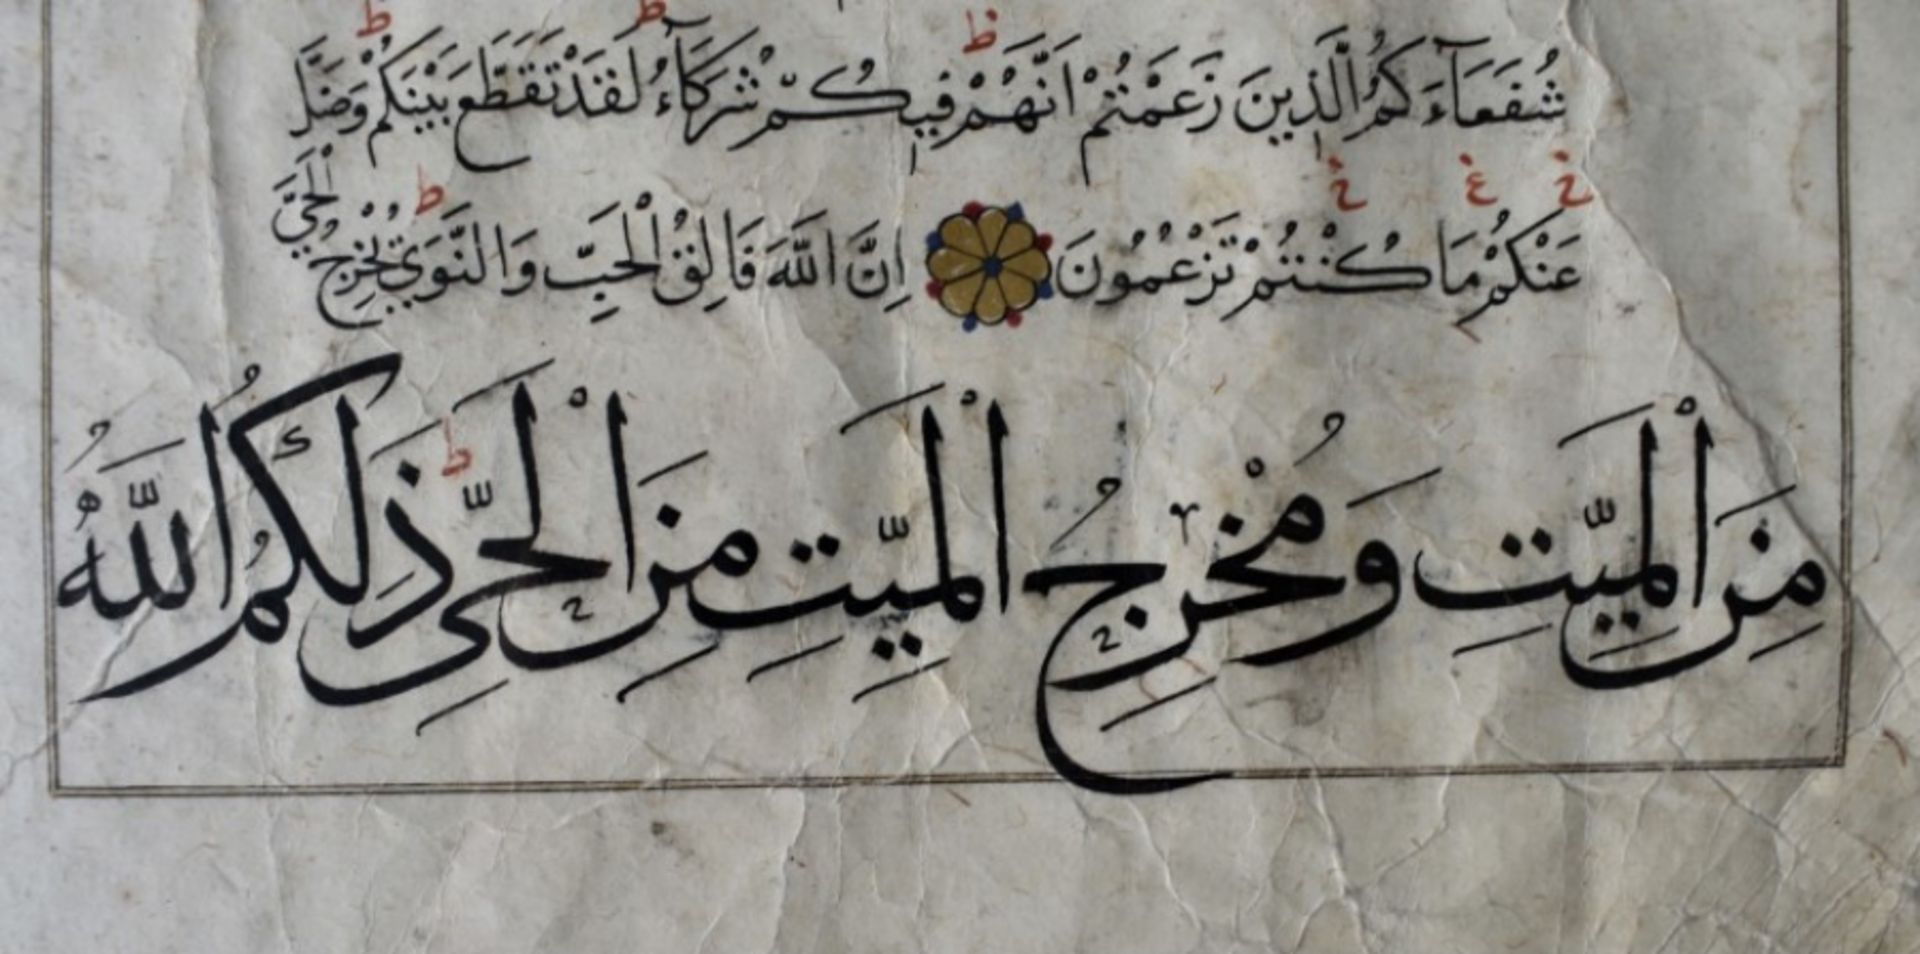 شُفَعَآءَكُمُ الَّذِينَ زَعَمْتُمْ اَنَّهُمْ فِيكُمْ شُرَكَآءُ لَقَدْ تَقَطَّعَ بَيْنَكُمْ وَضَلَّ
عَنْكُمْ مَا كُنْتُمْ تَزْعُمُونَ اِنَّ اللّٰهَ فَالِقُ الْحَبِّ وَالنَّوَىٰ يُخْرِجُ الْحَيَّ
مِنَ الْمَيِّتِ وَمُخْرِجُ الْمَيِّتِ مِنَ الْحَيِّ ذَلِكُمُ اللَّهُ